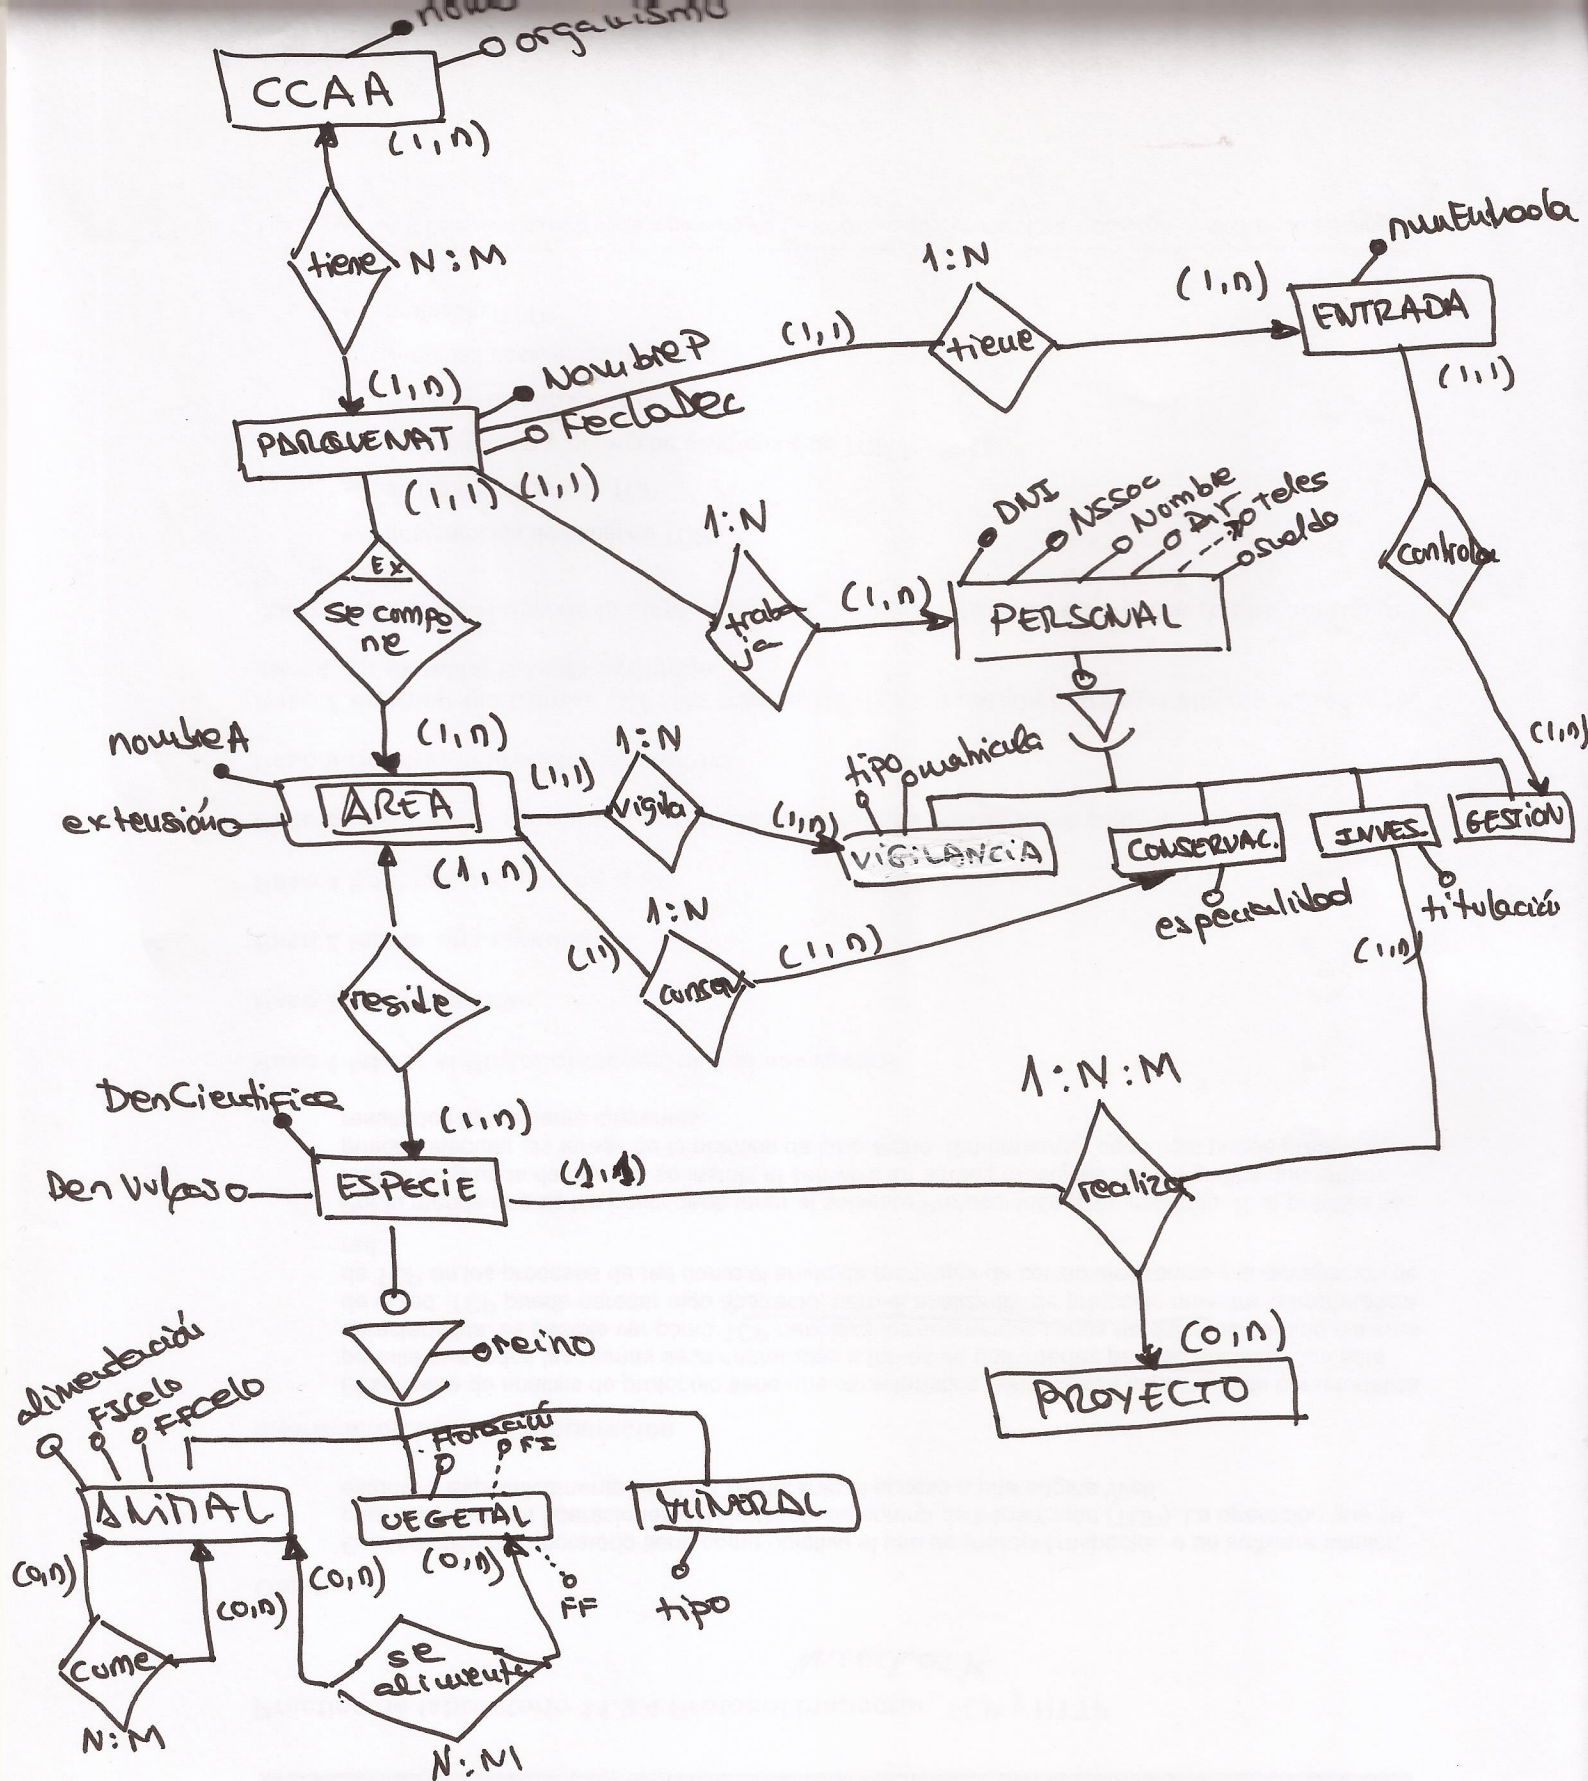 organismo
CCAA
(1,n)
tiene
N:M
(1,n)
NombreP
FechaDec
PARQUENAT
(1,1)
(1,1)
(1,1)
1:N
tiene
(1,n)
numEntrada
ENTRADA
(1,1)
controla
(1,n)
Ex
se compo
ne
1:N
traba
ja
(1,n)
DNI
NSSoc
Nombre
Dir
teles
sueldo
PERSONAL
(1,n)
nombreA
extensión
AREA
(1,1)
1:N
vigila
(1,n)
tipo
matricula
VIGILANCIA
CONSERVAC.
INVES.
GESTION
especialidad
titulación
(1,n)
(1,n)
(11)
1:N
conser
(1,n)
reside
(1,n)
DenCientifica
Den Vulgar
ESPECIE
(1,1)
1:N:M
realiza
(0,n)
PROYECTO
reino
alimentación
FICelo
FFCelo
Floración
FI
ANIMAL
VEGETAL
MINERAL
(0,n)
(0,n)
(0,n)
(0,n)
FF
tipo
come
N:M
se
alimenta
N:M